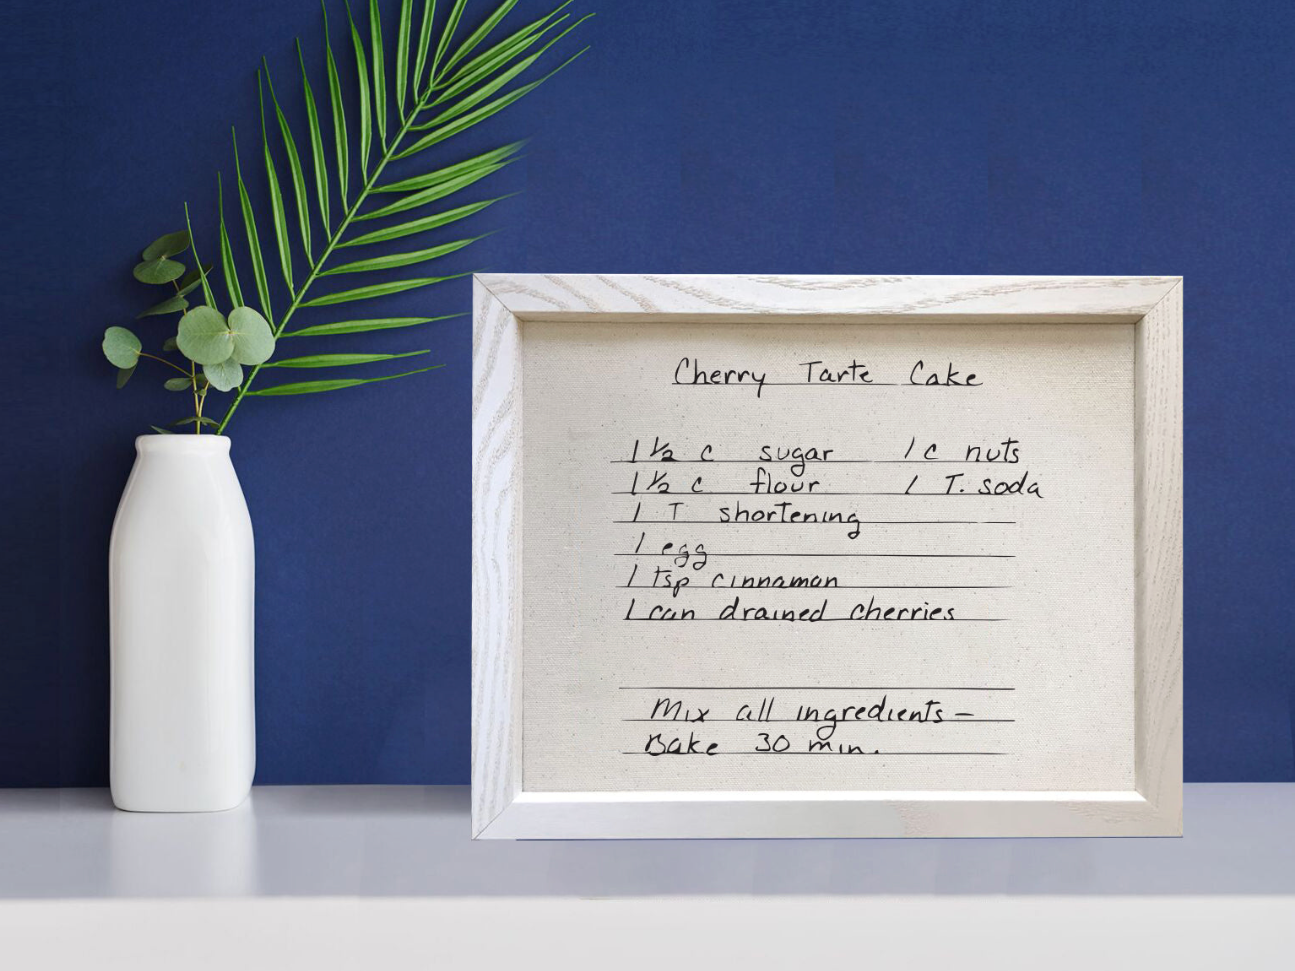 Cherry Tarte Cake
1 1/2 c sugar 1 c nuts
1 1/2 c flour 1 T. soda
1 T shortening
1 egg
1 tsp cinnamon
1 can drained cherries
Mix all ingredients –
Bake 30 min.